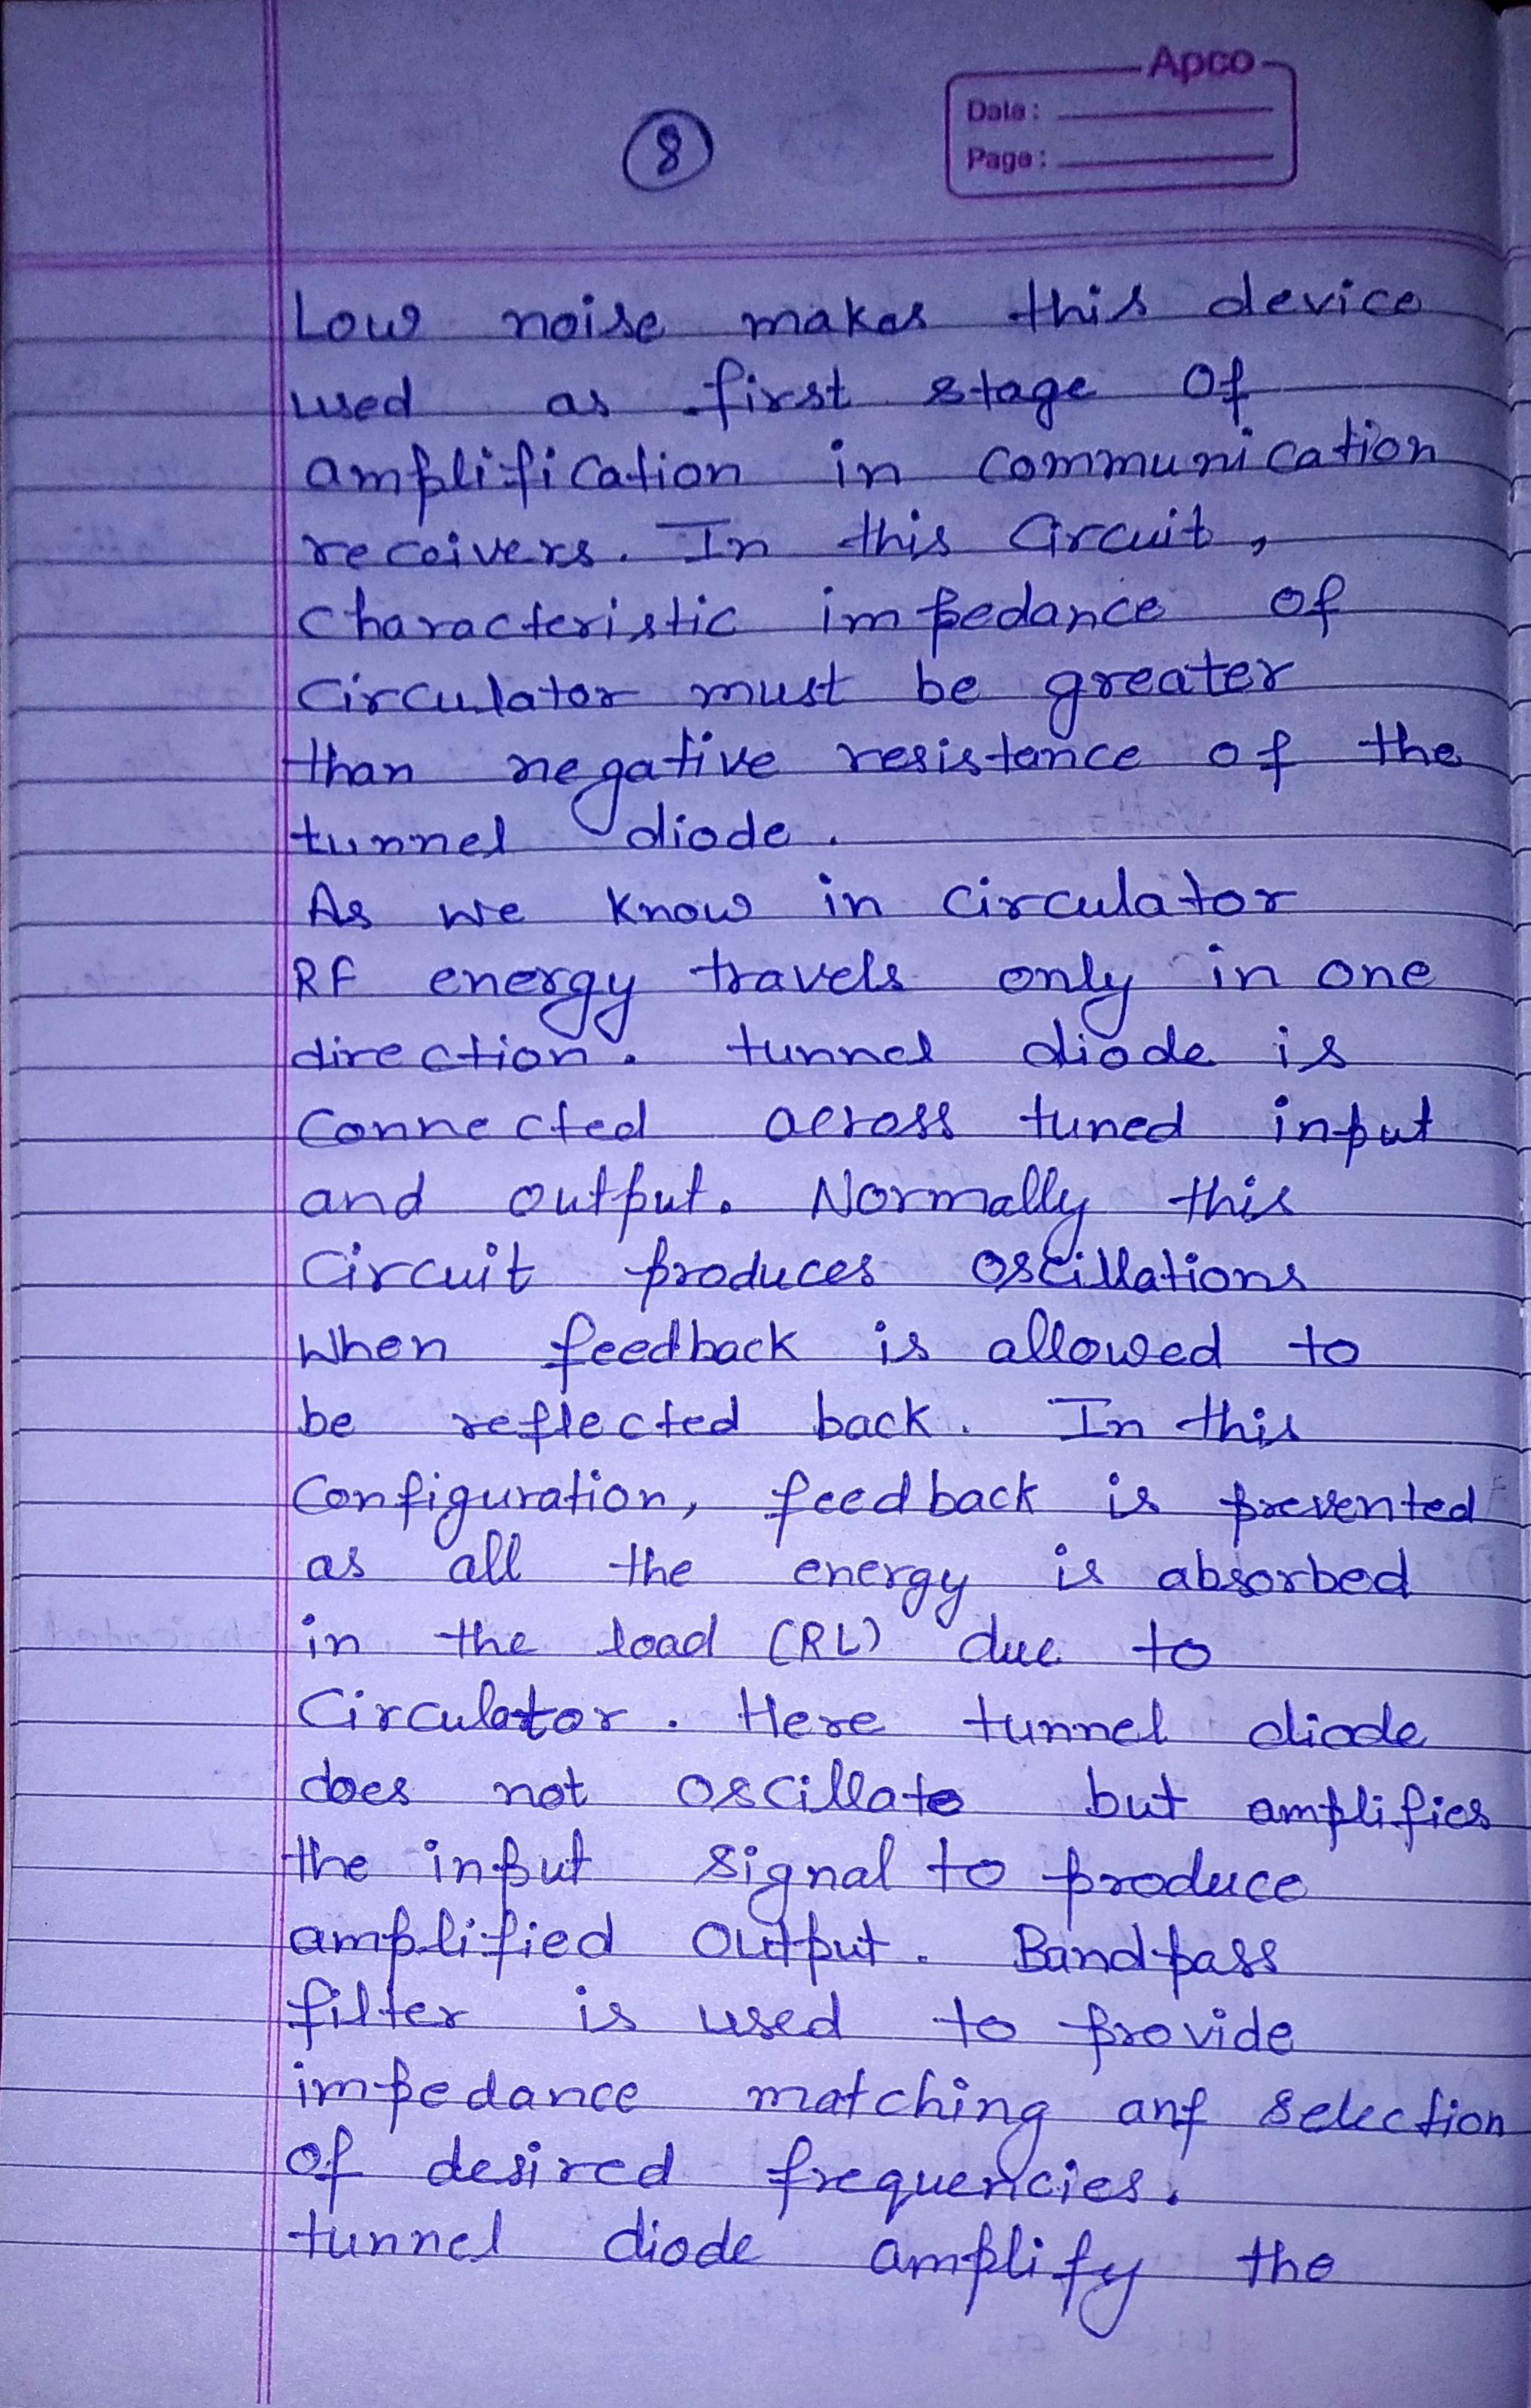 Apco
Date:
Page:
8
Low noise makes this device
used as first stage of
amplification in communication
receivers. In this Circuit,
characteristic impedance of
circulator must be greater
than negative resistance of the
tunnel diode.
As we know in circulator
RF energy travels only in one
direction. tunnel diode is
Connected across tuned input
and output. Normally this
Circuit produces oscillations
when feedback is allowed to
be reflected back. In this
Configuration, feedback is prevented
as all the energy is absorbed
in the load (RL) due to
Circulator. Here tunnel diode
does not oscillate but amplifies
the input signal to produce
amplified output. Bandpass
filter is used to provide
impedance matching anf selection
of desired frequencies.
tunnel diode amplify the